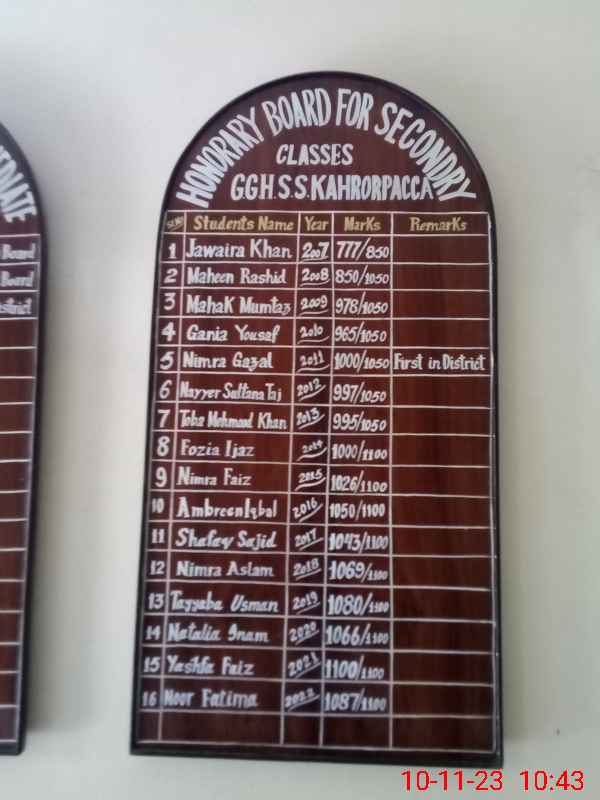 HONORARY BOARD FOR SECONDRY
CLASSES
GGH.S.S.KAHRORPACCA
Sr.No Students Name Year Marks Remarks
1 Jawaira Khan 2007 777/850
2 Maheen Rashid 2008 850/1050
3 Mahak Mumtaz 2009 978/1050
4 Gania Yousaf 2010 965/1050
5 Nimra Gazal 2011 1000/1050 First in District
6 Nayyer Sultana Taj 2012 997/1050
7 Toba Mehmood Khan 2013 995/1050
8 Fozia Ijaz 2014 1000/1100
9 Nimra Faiz 2015 1026/1100
10 Ambreen Iqbal 2016 1050/1100
11 Shafay Sajid 2017 1043/1100
12 Nimra Aslam 2018 1069/1100
13 Tayyaba Usman 2019 1080/1100
14 Natalia Inam 2020 1066/1100
15 Yashfa Faiz 2021 1100/1100
16 Noor Fatima 2022 1087/1100
Board
Board
10-11-23 10:43